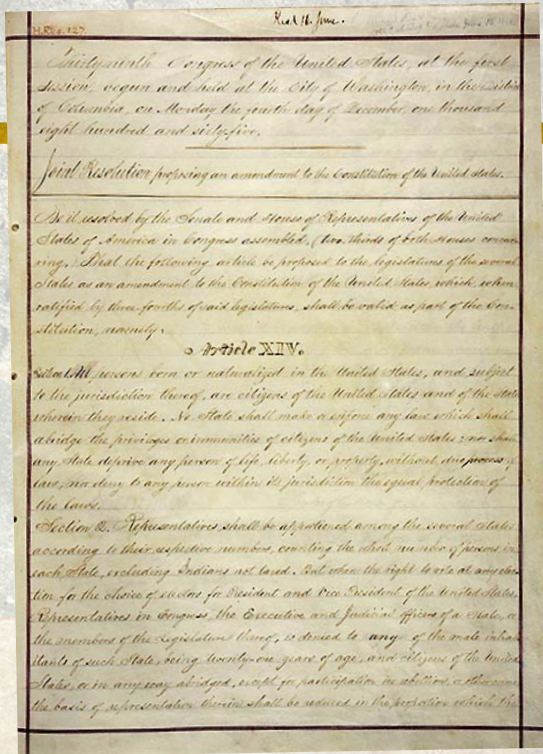 Recd 16 June.
H.Res. 127.
Thirty-ninth Congress of the United States, at the first
session, begun and held at the City of Washington, in the District
of Columbia, on Monday the fourth day of December, one thousand
eight hundred and sixty-five.
Joint Resolution proposing an amendment to the Constitution of the United States.
Be it resolved by the Senate and House of Representatives of the United
States of America in Congress assembled, (two-thirds of both Houses concur-
ring,) That the following article be proposed to the legislatures of the several
States as an amendment to the Constitution of the United States, which, when
ratified by three-fourths of said legislatures, shall be valid as part of the Con-
stitution, namely:
Article XIV.
Section 1. All persons born or naturalized in the United States, and subject
to the jurisdiction thereof, are citizens of the United States and of the State
wherein they reside. No State shall make or enforce any law which shall
abridge the privileges or immunities of citizens of the United States; nor shall
any State deprive any person of life, liberty, or property, without due process of
law, nor deny to any person within its jurisdiction the equal protection of
the laws.
Section 2. Representatives shall be apportioned among the several States
according to their respective numbers, counting the whole number of persons in
each State, excluding Indians not taxed. But when the right to vote at any elec-
tion for the choice of electors for President and Vice President of the United States,
Representatives in Congress, the Executive and Judicial officers of a State, or
the members of the Legislature thereof, is denied to any of the male inhab-
itants of such State, being twenty-one years of age, and citizens of the United
States, or in any way abridged, except for participation in rebellion, or other crime,
the basis of representation therein shall be reduced in the proportion which the